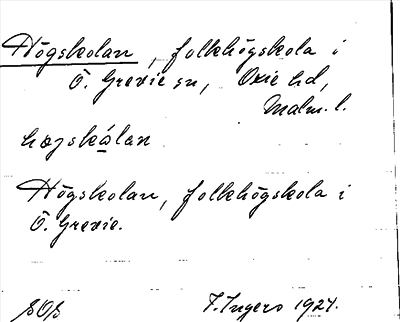 Högskolan, folkhögskola i
Ö. Grevie sn, Oxie hd,
Malm. l.
hægskålan
Högskolan, folkhögskola i
Ö. Grevie.
SOS I. Ingers 1927.